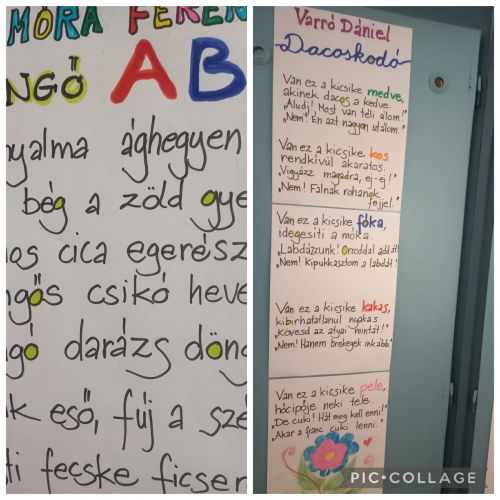 MÓRA FEREN
NGŐ AB
nyalma ághegyen
bég a zöld gye
os cica egerész
ngős csikó heve
gó darázs döng
k eső, fúj a szé
ti fecske ficser
Varró Dániel
Dacoskodó
Van ez a kicsike medve,
akinek dacos a kedve.
"Aludj! Most van téli álom!"
"Nem! Én azt nagyon utálom."
Van ez a kicsike kos
rendkívül akaratos.
"Vigyázz magadra, ej-ej!"
"Nem! Falnak rohanok
fejjel."
Van ez a kicsike fóka,
idegesíti a móka.
"Labdázzunk! Orroddal add át!"
"Nem! Kipukkasztom a labdát!"
Van ez a kicsike kakas,
kibírhatatlanul nyakas
"Kövesd az atyai mintát!"
"Nem! Hanem brekegek inkább."
Van ez a kicsike pele,
hócipője neki tele.
"De cuki! Hát meg kell enni!"
"Akar a franc cuki lenni."
PIC•COLLAGE